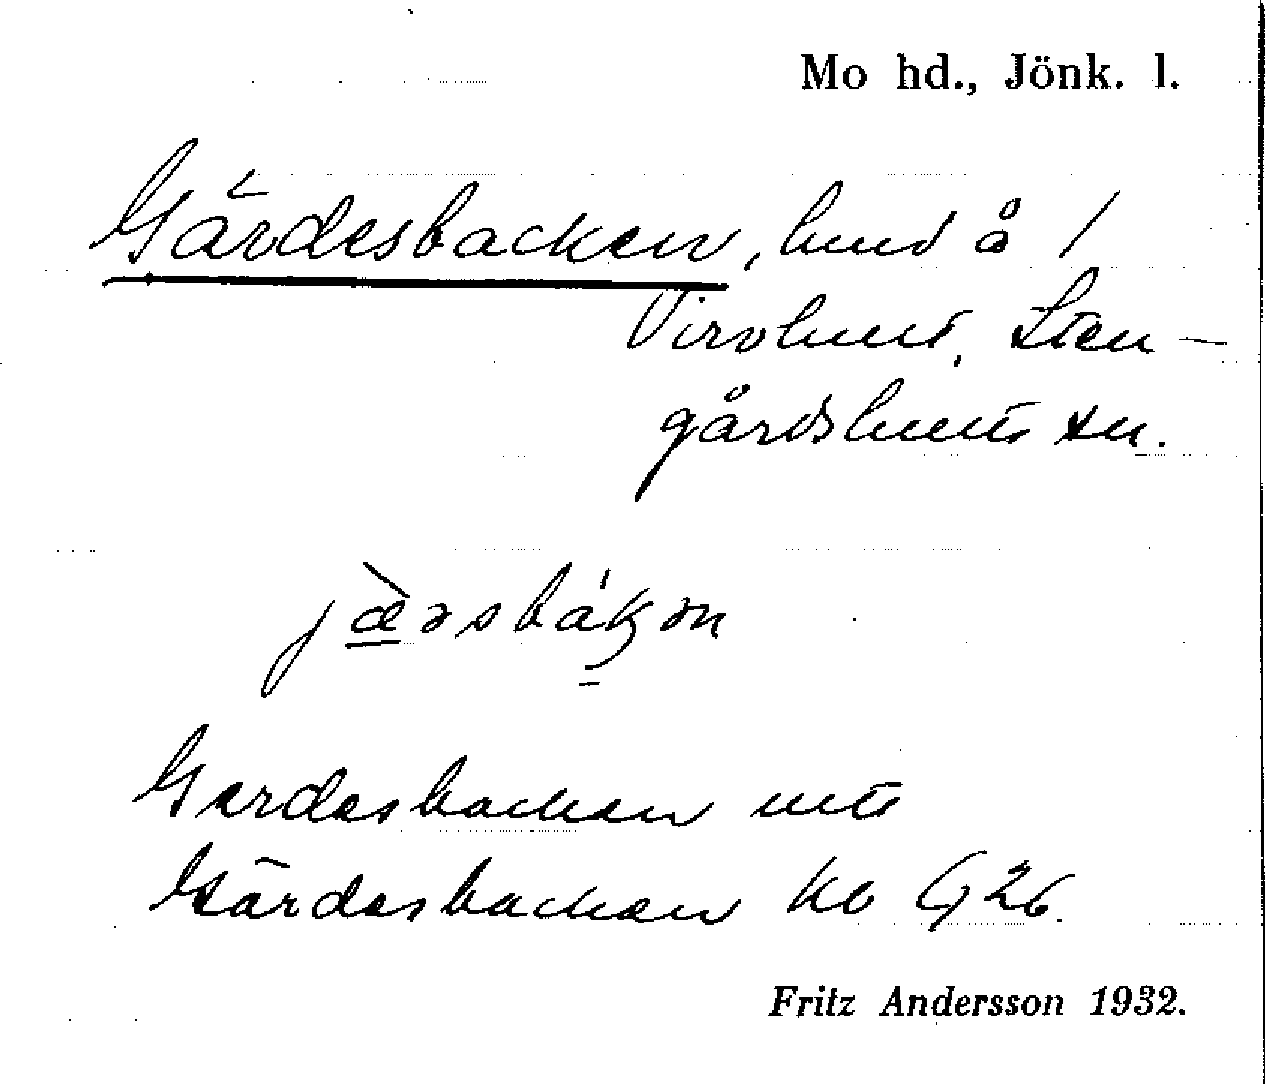 Mo hd., Jönk. l.
Gärdesbacken, hmd å 1
Virvhult, Sten-
gårdshults sn.
Gerdesbacken
Gärdesbacken kb G 26.
Fritz Andersson 1932.